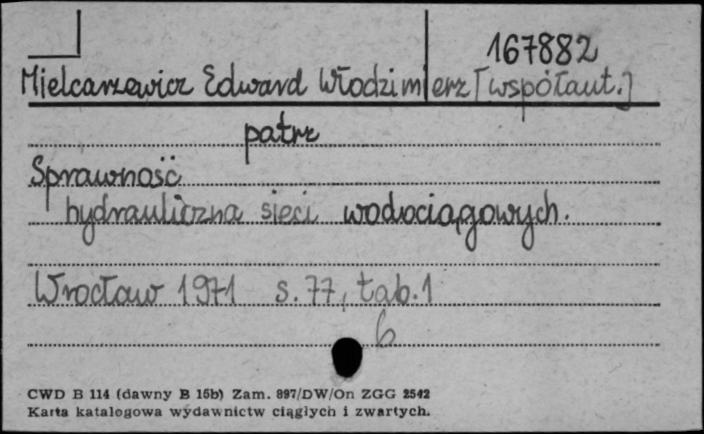 167882
Mielcarzewicz Edward Włodzimierz [współaut.]
patrz
Sprawność
hydrauliczna sieci wodociągowych.
Wrocław 1971 s. 77, tab. 1
6
CWD B 114 (dawny B 15b) Zam. 897/DW/On ZGG 2542
Karta katalogowa wydawnictw ciągłych i zwartych.